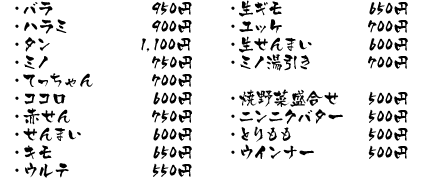 ・バラ 950円
・ハラミ 900円
・タン 1,100円
・ミノ 750円
・てっちゃん 700円
・ココロ 600円
・赤せん 750円
・せんまい 600円
・キモ 650円
・ウルテ 550円
・生ギモ 650円
・ユッケ 700円
・生せんまい 600円
・ミノ湯引き 700円
・焼野菜盛合せ 500円
・ニンニクバター 500円
・とりもも 500円
・ウインナー 500円